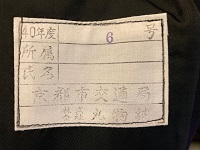 40年度 6 号
所属
氏名
京都市交通局
丸物